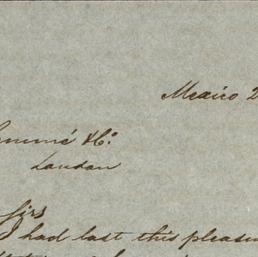 Mexico 2
& Co
London
Sirs
I had last this pleasu